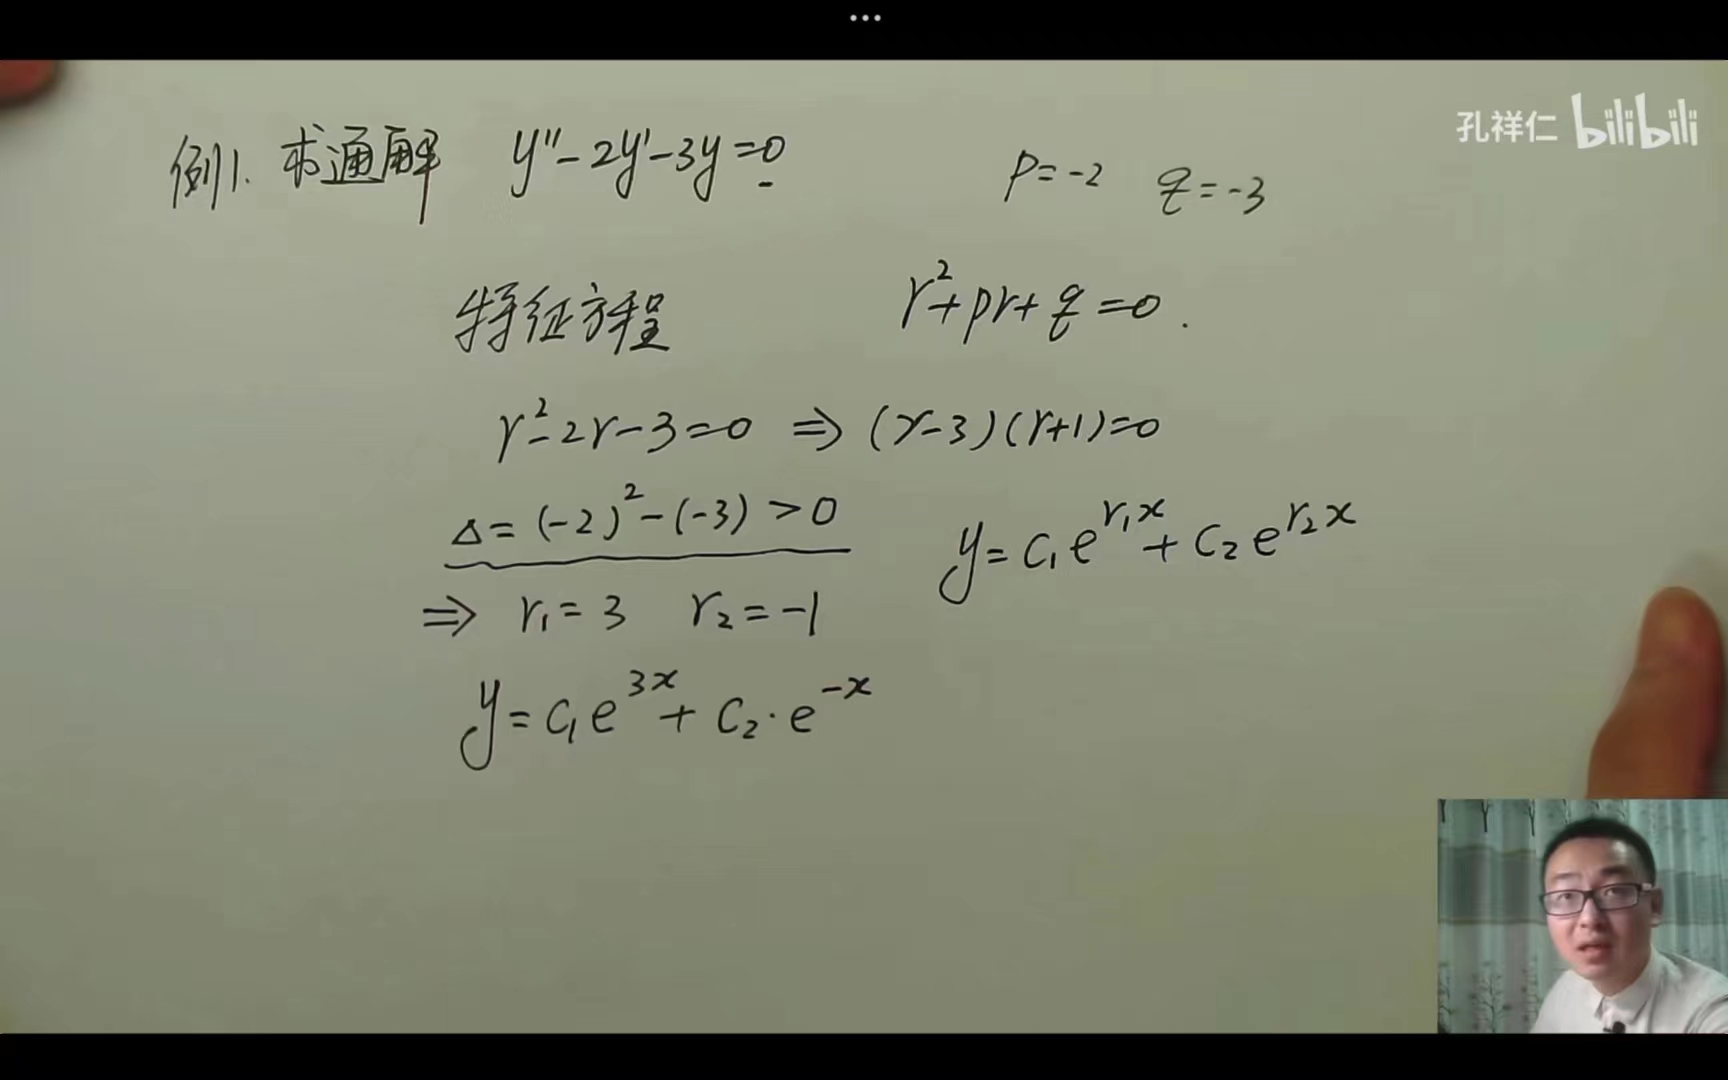 ...
孔祥仁 bilibili
例1. 求通解 y''-2y'-3y=0 p=-2 q=-3
特征方程 r²+pr+q=0.
r²-2r-3=0 ⇒ (r-3)(r+1)=0
Δ=(-2)²-(-3)>0
y=c₁e^{r₁x}+c₂e^{r₂x}
⇒ r₁=3 r₂=-1
y=c₁e^{3x}+c₂·e^{-x}